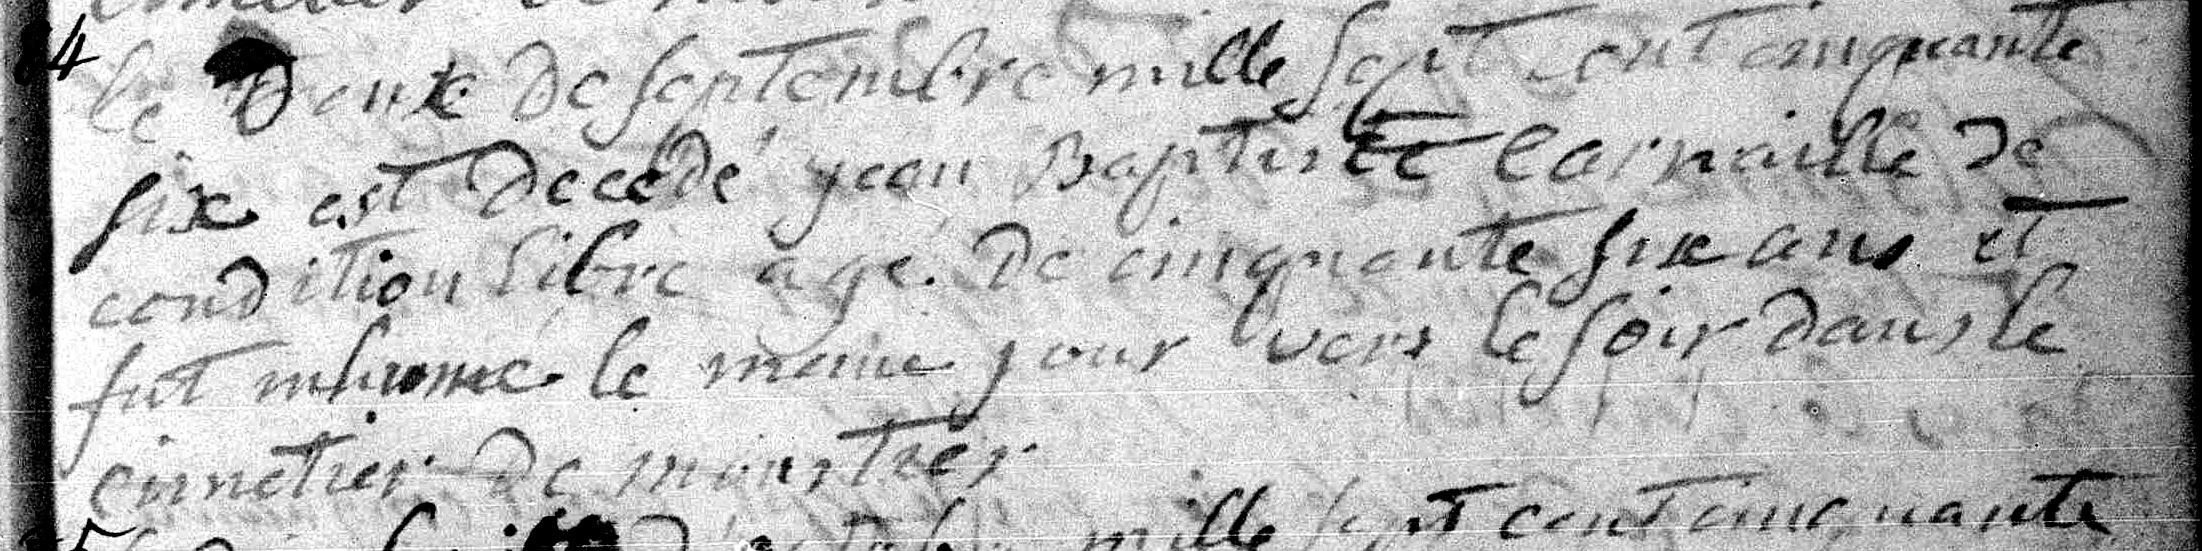 84
le trente de septembre mille sept cent cinquante
six est decedé jean Baptiste Carpaille de
condition libre agé de cinquante six ans et
fut inhumé le meme jour vers le soir dans le
cimetier de moustier
d'octobre mille sept cent cinquante